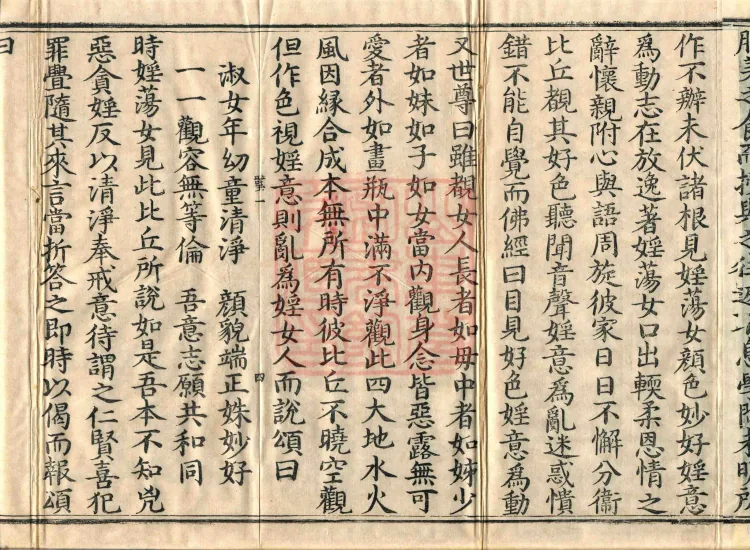 作不辦未伏諸根見婬蕩女顏色妙好婬意
為動志在放逸著婬蕩女口出輭柔恩情之
辭懷親附心與語周旋彼家日日不懈分衛
比丘覩其好色聽聞音聲婬意為亂迷惑憒
錯不能自覺而佛經曰目見好色婬意為動
又世尊曰雖覩女人長者如母中者如姊少
者如妹如子如女當內觀身念皆惡露無可
愛者外如畫瓶中滿不淨觀此四大地水火
風因緣合成本無所有時彼比丘不曉空觀
但作色視婬意則亂為婬女人而說頌曰
四
淑女年幼童清淨 顏貌端正姝妙好
一一觀容無等倫 吾意志願共和同
時婬蕩女見此比丘所說如是吾本不知兇
惡貪婬反以清淨奉戒意待謂之仁賢喜犯
罪舋隨其來言當折答之即時以偈而報頌
曰